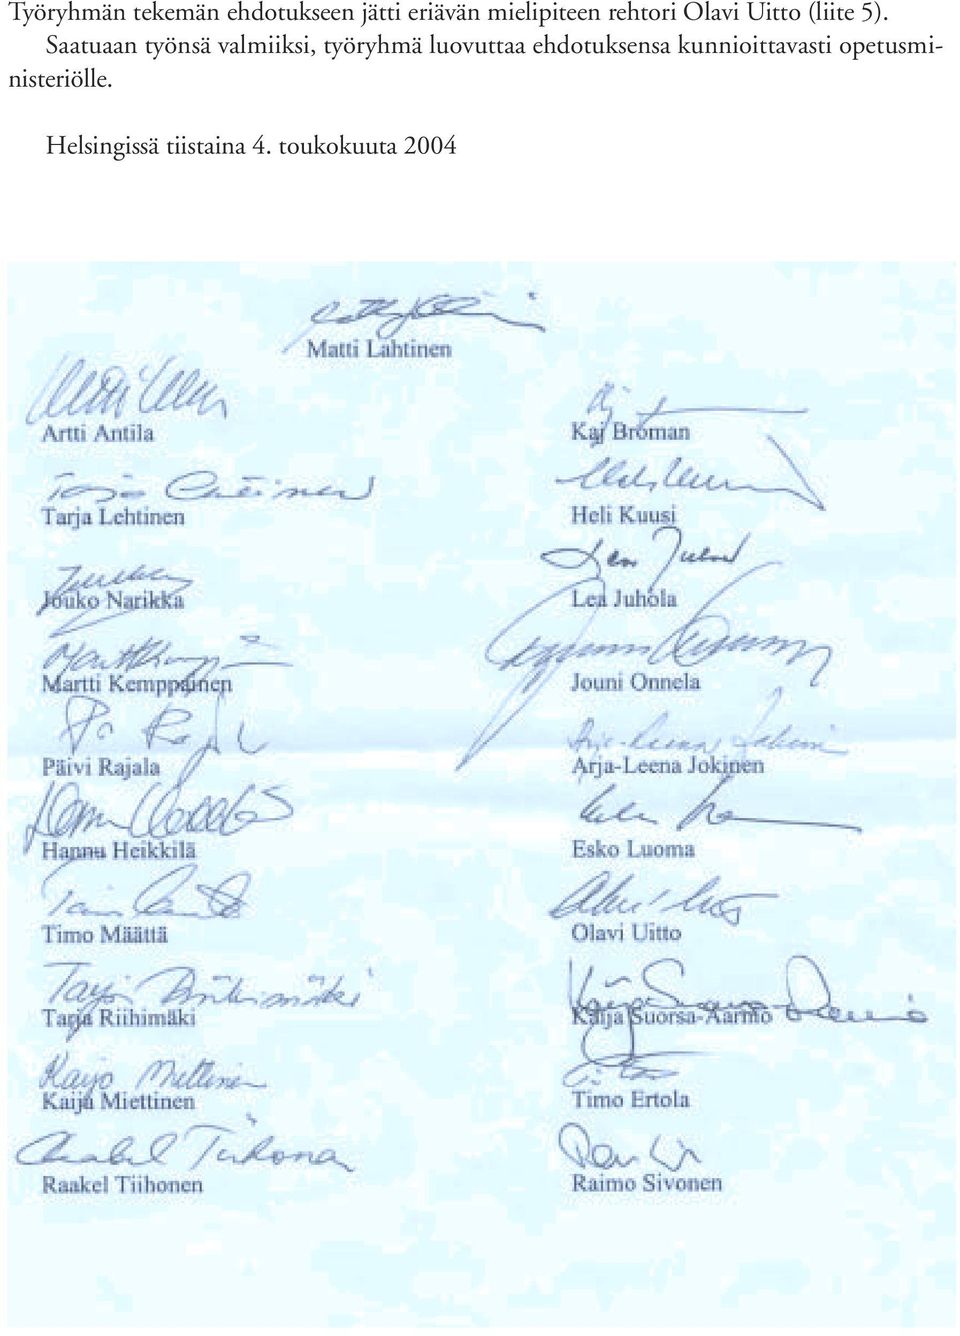 Työryhmän tekemän ehdotukseen jätti eriävän mielipiteen rehtori Olavi Uitto (liite 5).
Saatuaan työnsä valmiiksi, työryhmä luovuttaa ehdotuksensa kunnioittavasti opetusmi-
nisteriölle.
Helsingissä tiistaina 4. toukokuuta 2004
Matti Lahtinen
Artti Antila
Kaj Broman
Tarja Lehtinen
Tarja Lehtinen
Heli Kuusi
Lea Juhola
Jouko Narikka
Lea Juhola
Martti Kemppainen
Jouni Onnela
Arja-Leena Jokinen
Päivi Rajala
Arja-Leena Jokinen
Hannu Heikkilä
Esko Luoma
Timo Määttä
Olavi Uitto
Tarja Riihimäki
Tarja Riihimäki
Kaija Suorsa-Aarnio
Kaija Miettinen
Kaija Miettinen
Timo Ertola
Raakel Tiihonen
Raakel Tiihonen
Raimo Sivonen